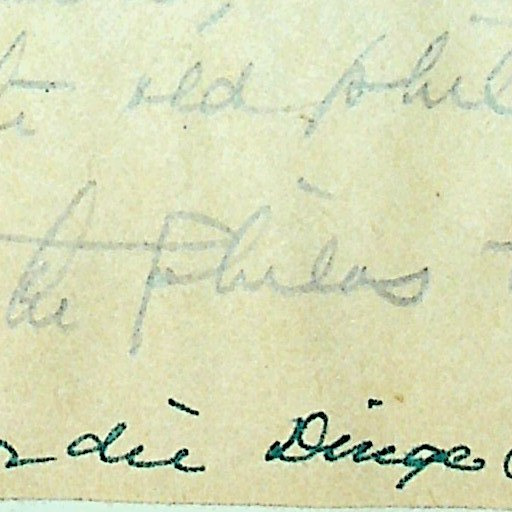 old phil
the Philos
die Dinge